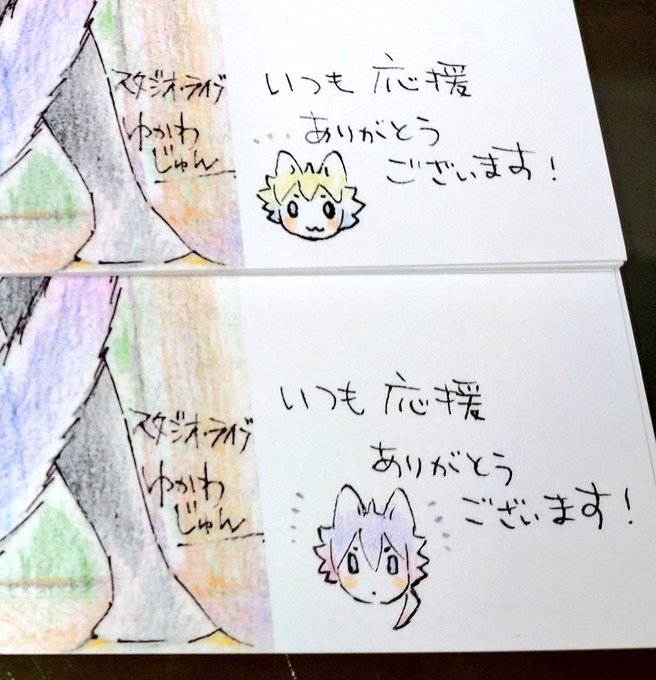 スタジオ・ライブ
ゆかわ
じゅん
いつも応援
ありがとう
ございます!
スタジオ・ライブ
ゆかわ
じゅん
いつも応援
ありがとう
ございます!